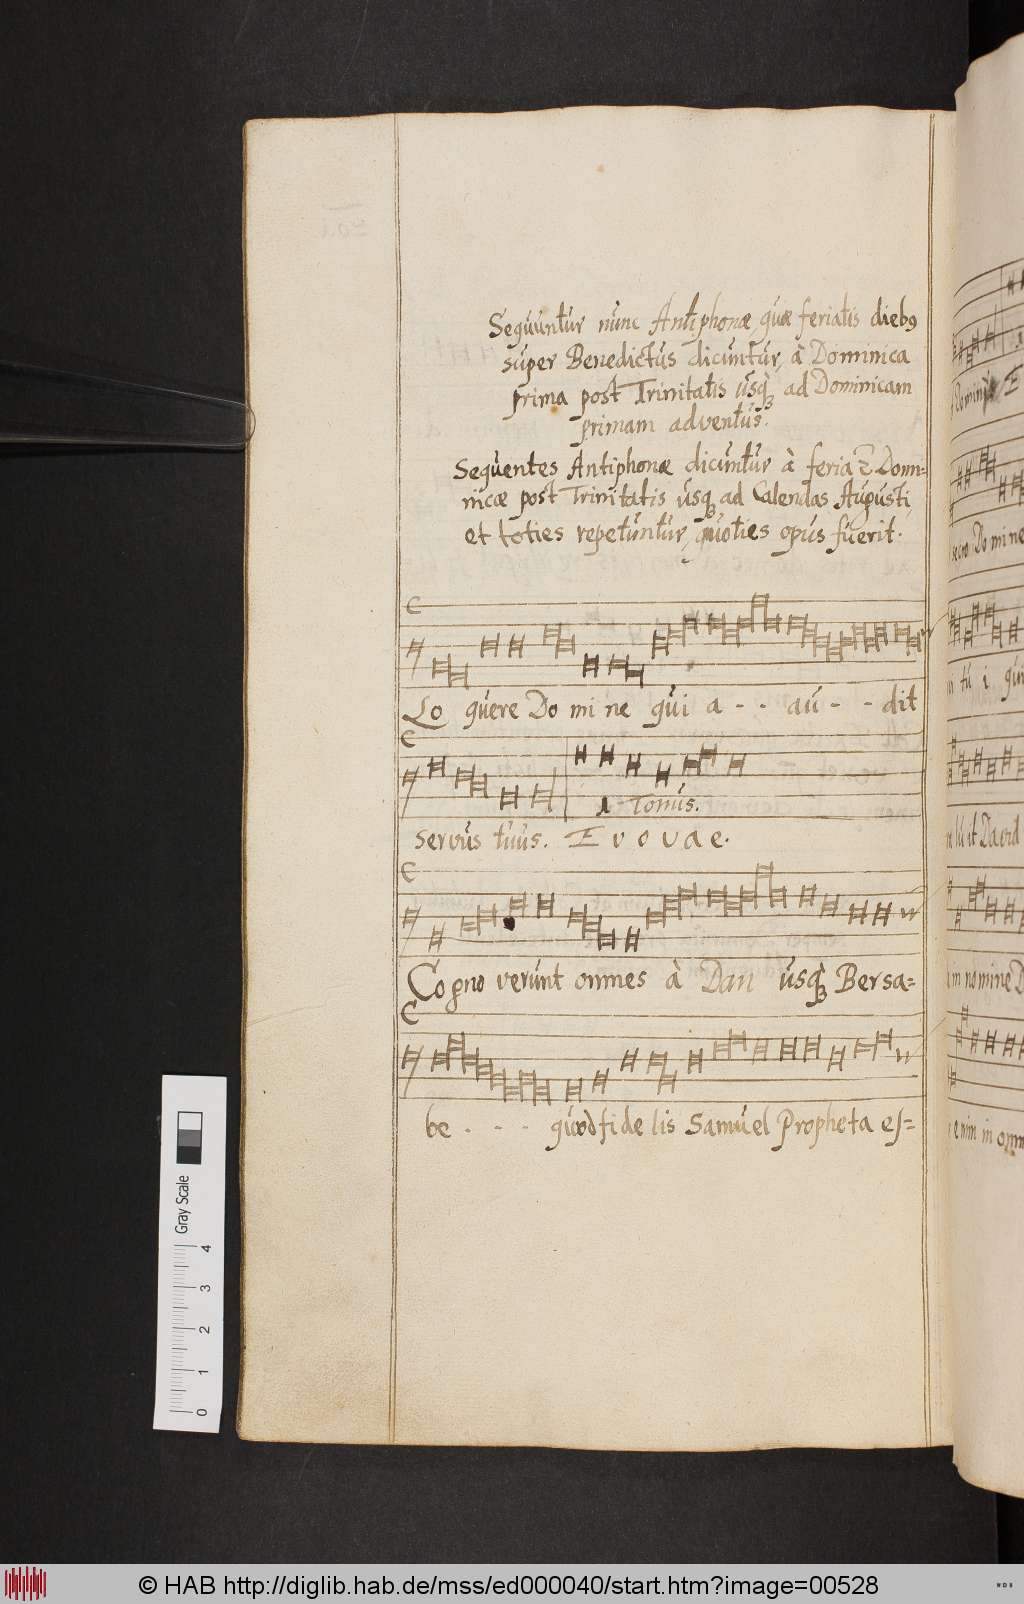 Sequuntur nunc Antiphonæ, quæ feriatis diebꝰ
super Benedictus dicuntur, à Dominica
prima post Trinitatis usqꝫ ad Dominicam
primam adventus.
Sequentes Antiphonæ dicuntur à feria 2 Domi=
nicæ post Trinitatis usqꝫ ad Calendas Augusti,
et toties repetuntur, quoties opus fuerit.
C
Lo quere Do mi ne qui a - - au - - dit
C
1 Tonus.
servus tuus. E v o v a e.
C
Cogno verunt omnes à Dan usqꝫ Bersa=
C
be - - - quod fi de lis Samuel Propheta es=
Domini
secro Do mi ne
tu i
David
in nomine
enim in omni
Gray Scale
0 1 2 3 4
© HAB http://diglib.hab.de/mss/ed000040/start.htm?image=00528